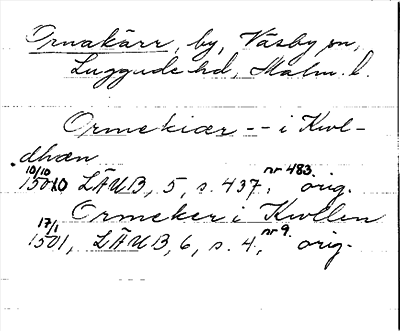 Ornakärr, by, Väsby sn,
Luggude hd, Malm. l.
Ormekiær -- i Kwl-
dhæn
10/10 1500 LÄUB, 5, s. 437, nr 483. orig.
Ormeker i Kwllen
17/1 1501, LÄUB, 6, s. 4, nr 9. orig.